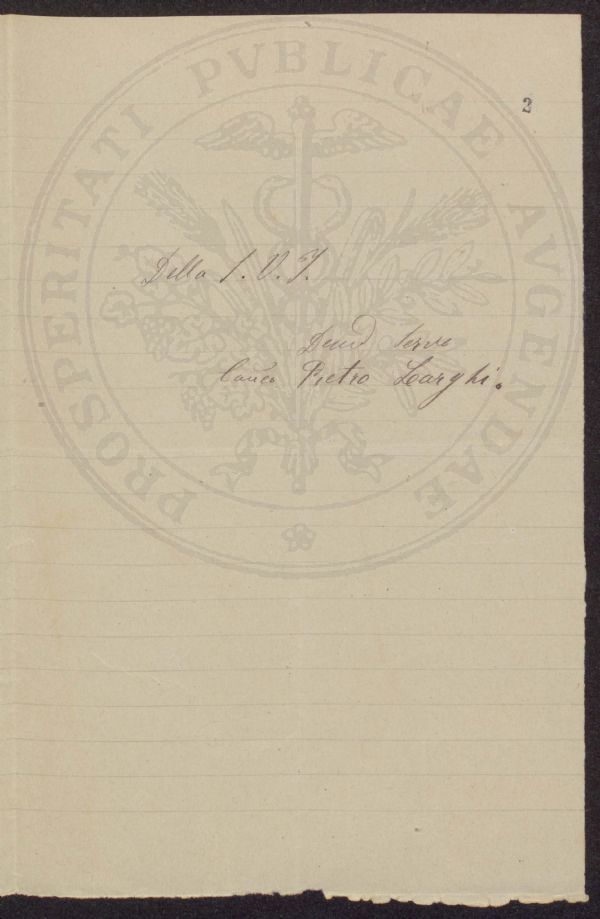 2
Della S. V. I.
Devd Servo
Canco Pietro Larghi.
PROSPERITATI PVBLICAE AVGENDAE